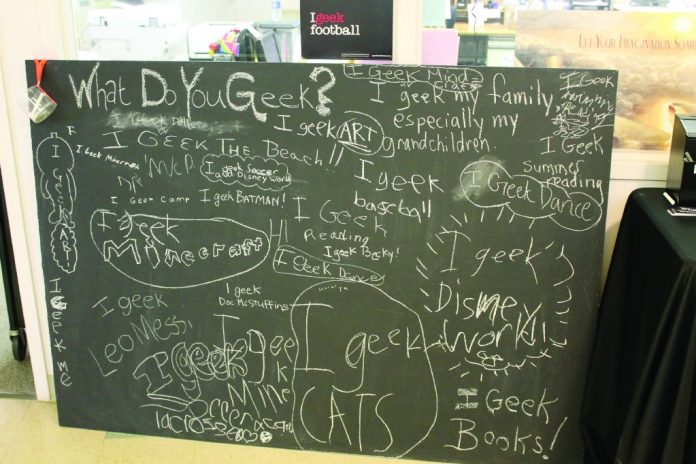 I geek
football
LET YOUR IMAGINATION SOAR
WHAT DO YOU GEEK?
I GEEK THE BEACH!!
I geek ART
I GEEK MIND
CRAFT
I geek my family
especially my
grandchildren.
I Geek
Swimming
Reading
I GEEK
summer
reading
I GEEK DANCE
I Geek
MVP
I geek Soccer
Disney World
I Geek Camp
I geek BATMAN!
I geek
baseball
I GEEK
Reading
I geek Becky!
HI
I Geek Dance
I GEEK ART
I GEEK ME
I geek
Minecraft
I geek
Doc McStuffins
I geek
Leo Messi
I geek
lacrosse
I geek
Mine
I geek
CATS
I geek's
Disney
World!
I GEEK
Books!